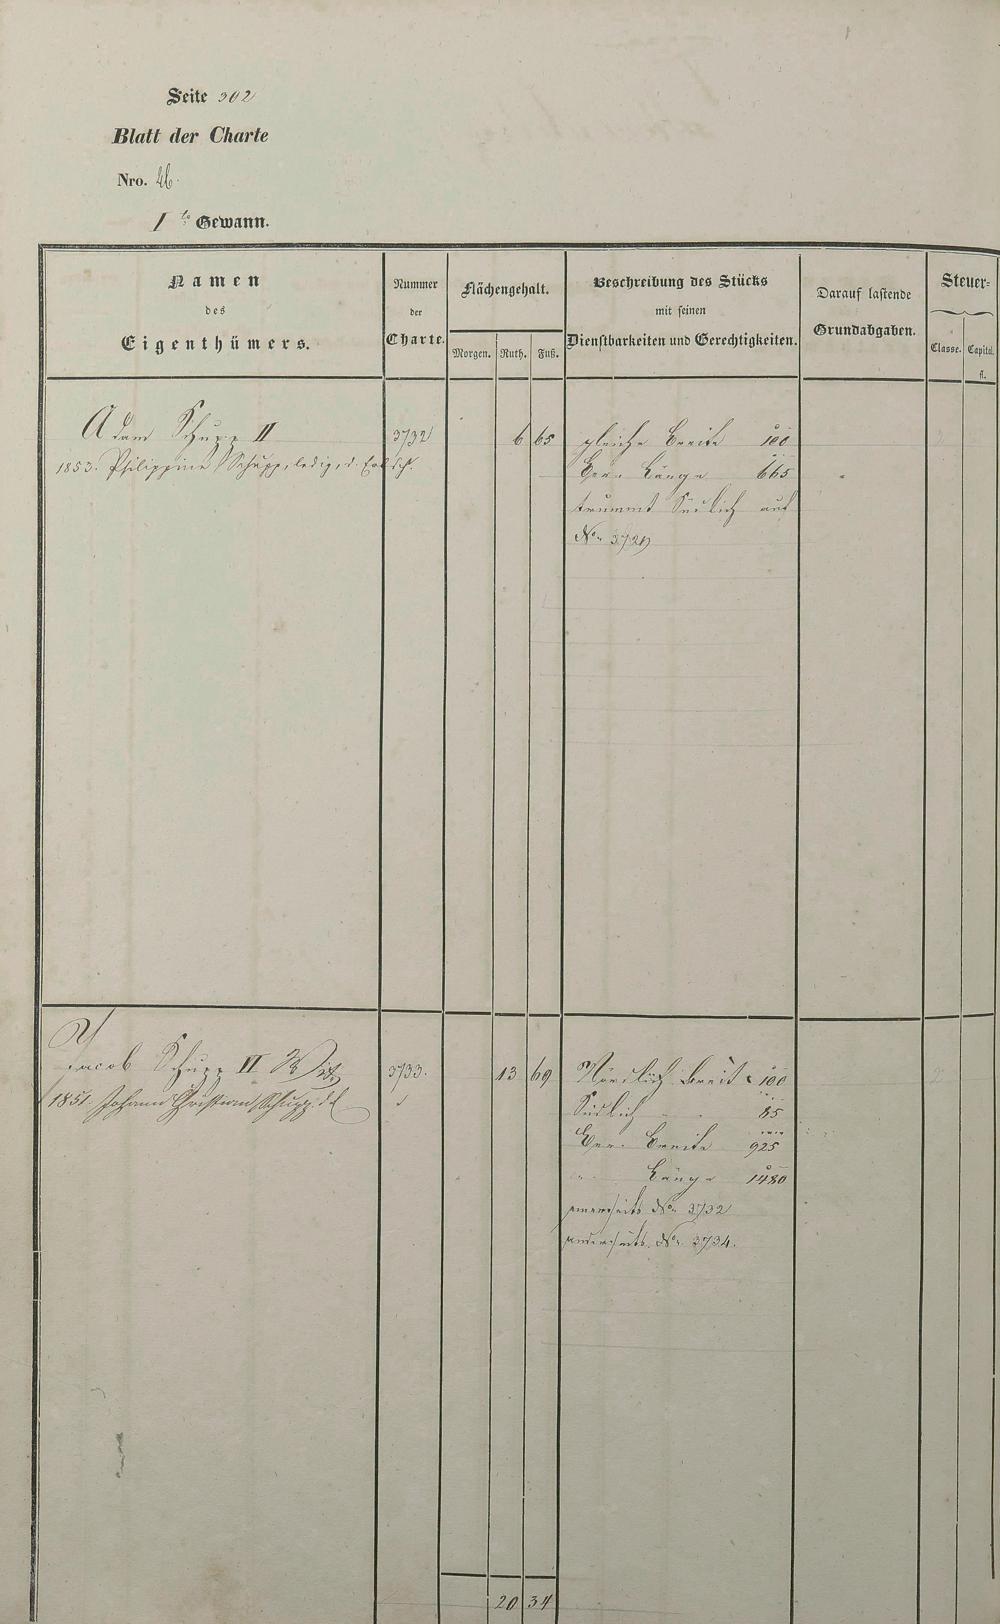 Seite 302
Blatt der Charte
Nro. 46.
1te Gewann.
Namen
des
Eigenthümers.
Nummer
der
Charte.
Flächengehalt.
Morgen. Ruth. Fuß.
Beschreibung des Stücks
mit seinen
Dienstbarkeiten und Gerechtigkeiten.
Darauf lastende
Grundabgaben.
Steuer-
Classe. Capital.
fl.
Adam Schupp II 3732 6 65 gleiche Breite 100
1853. Philippine Schupp, ledig, d.
Verm. Länge 665
trummt Südlich auf
No. 3729
Jacob Schupp VI Wte 3733. 13 69 Nördlich breit 100
1851. Johann Christian Schupp
Südlich 85
Verm. Breite 925
" Länge 1480
einerseits No. 3732
anderseits No. 3734.
20 34